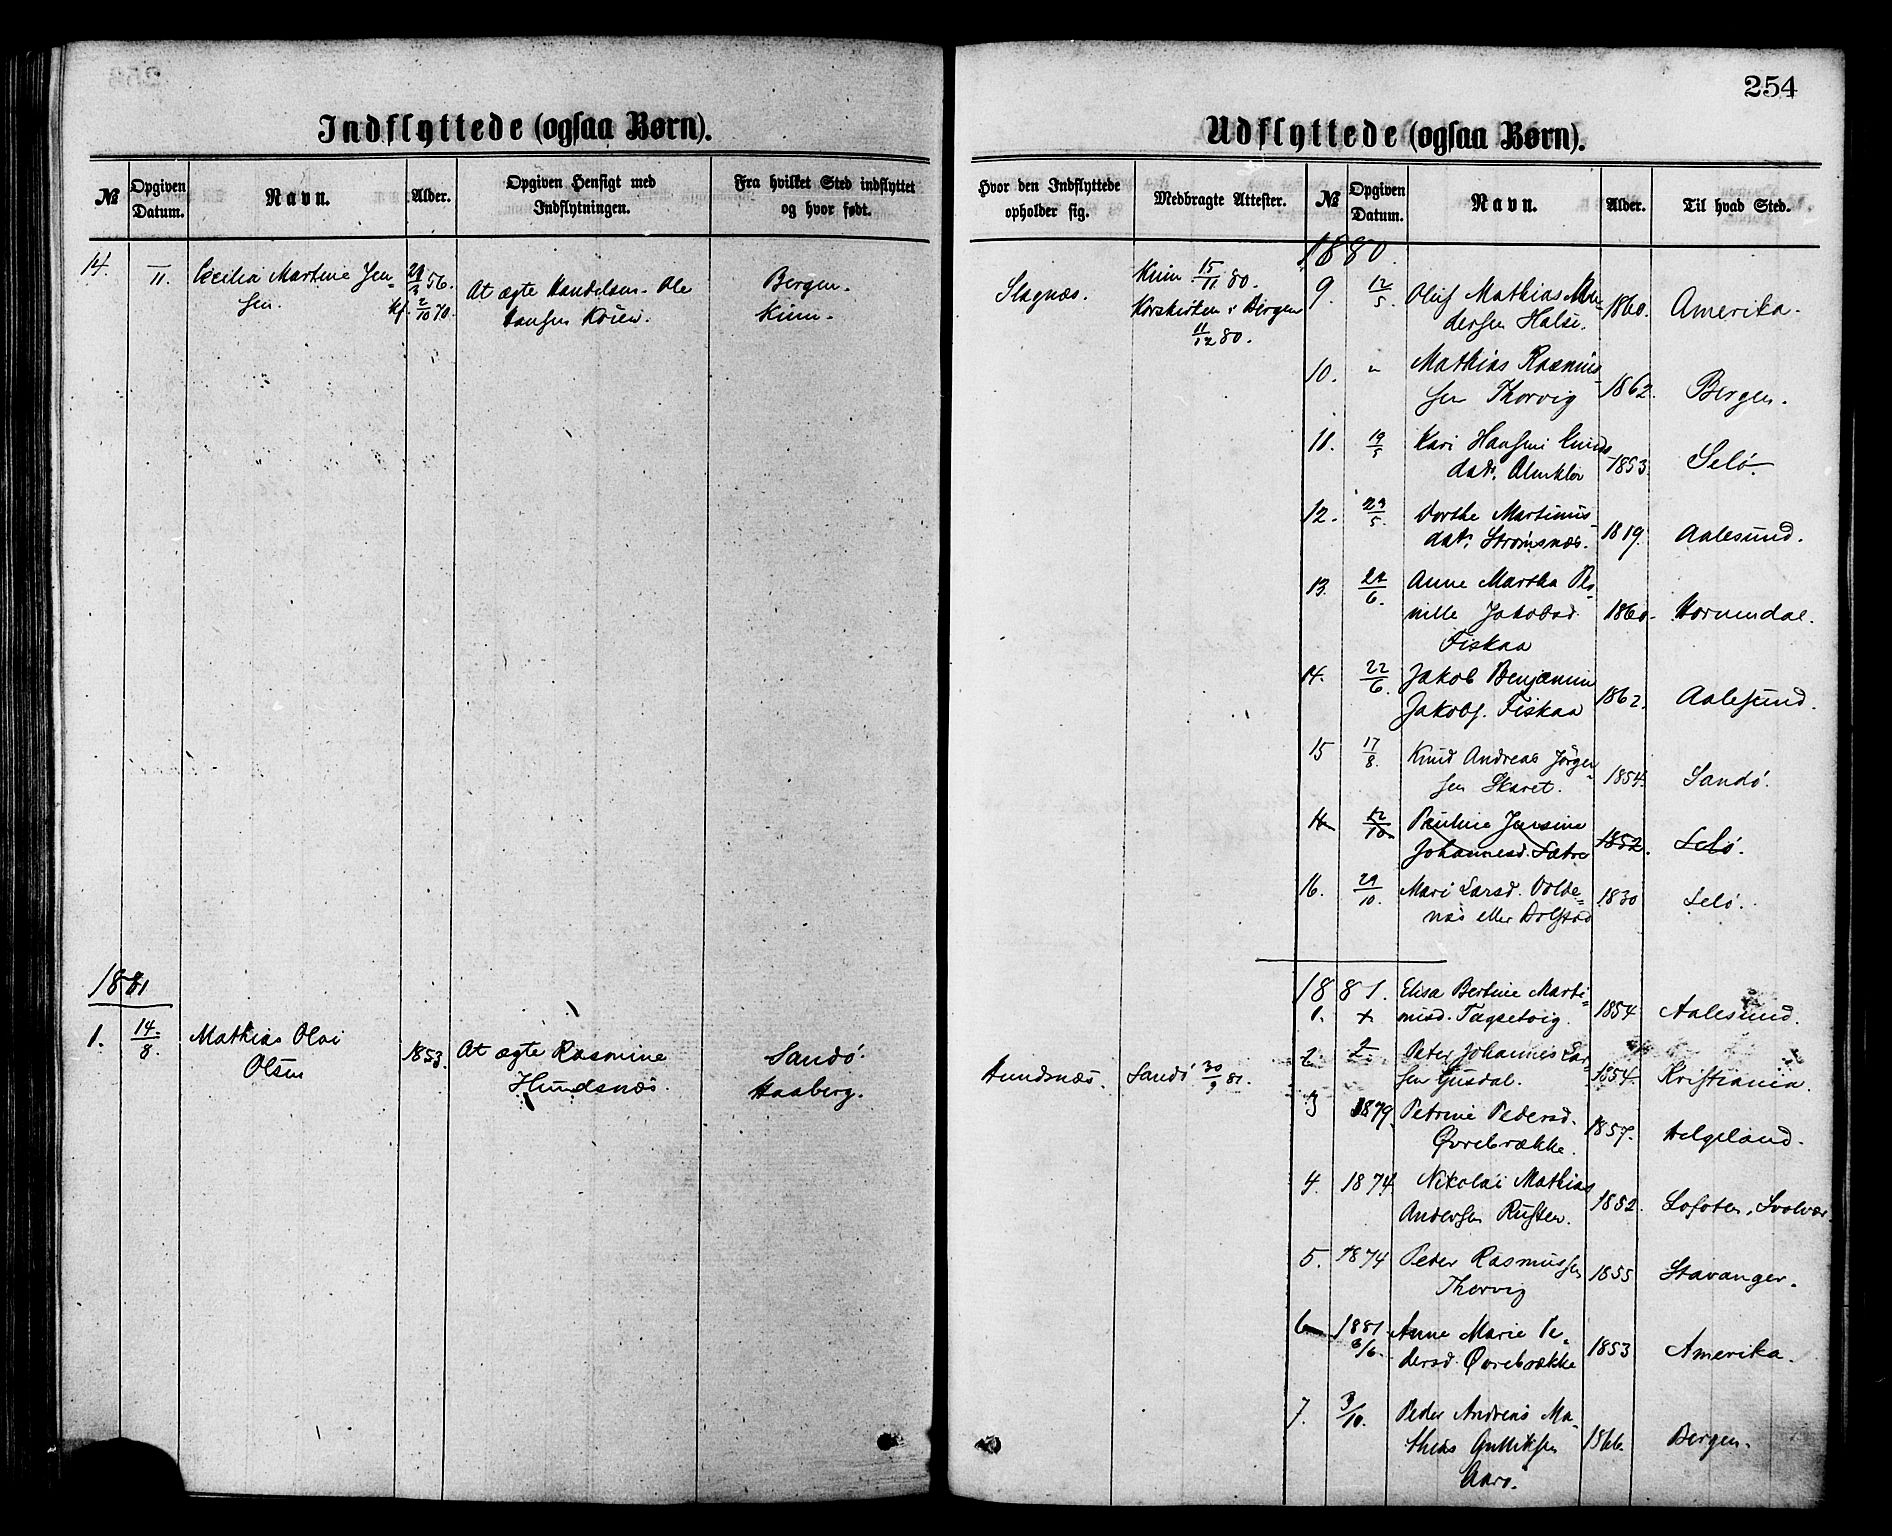 254
Indflyttede (ogsaa Børn).
№
Opgiven Datum.
Navn.
Alder.
Opgiven Hensigt med Indflytningen.
Fra hvilket Sted indflyttet og hvor født.
14.
11
Cecilia Martine Jen-
sen.
29/3 56.
kf. 2/10 70.
At ægte Handelsm. Ole
Hansen
Bergen.
Kinn.
1881
1.
14/8.
Mathias Olai
Olsen
1853.
At ægte Rasmine
Hundsnæs.
Sandö.
Haaberg.
Udflyttede (ogsaa Børn).
Hvor den Indflyttede opholder sig.
Medbragte Attester.
№
Opgiven Datum.
Navn.
Alder.
Til hvad Sted.
Slagnæs.
Kinn 15/11 80.
Korskirken i Bergen
11/12 80.
1880.
9. 12/5. Oluf Mathias An-
dersen Halse. 1860. Amerika.
10. " Mathias Rasmus-
sen Thorvig 1862. Bergen.
11. 19/5 Kari Hansine Knuds-
datr. Almklov 1853. Selö.
12. 23/5. Dorthe Martinus-
datr. Strømsnæs. 1819. Aalesund.
13. 22/6. Anne Martha Per-
nille Jakobsd.
Fiskaa 1860. Hornindal.
14. 22/6. Jakob Benjamin
Jakobs. Fiskaa 1862. Aalesund.
15 17/8. Knud Andreas Jörgen-
sen Skaret. 1854. Sandö.
16 12/10. Pauline Jensine
Johannesd. Sætre 1852. Selö.
16. 29/10. Mari Larsd. Volde-
næs eller Dolstad 1830 Selö.
1881.
1. Elisa Bertine Marti-
nusd. Tagsetvig. 1854 Aalesund.
2 Peter Johannes Lar-
sen Gusdal. 1854. Kristiania.
Hundsnæs. Sandö 30/9 81.
3 1879. Petrine Pedersd.
Øvrebrække. 1857. Helgeland.
4. 1874 Nikolai Mathias
Andersen Rusten. 1852. Lofoten, Svolvær.
5. 1874 Peder Rasmussen
Thorvig 1855 Stavanger.
6 1881 3/6. Anne Marie Pe-
dersd. Øvrebrække 1853 Amerika.
7. 3/10. Peder Andreas Ma-
thias Gulliksen
Aarö. 1866. Bergen.